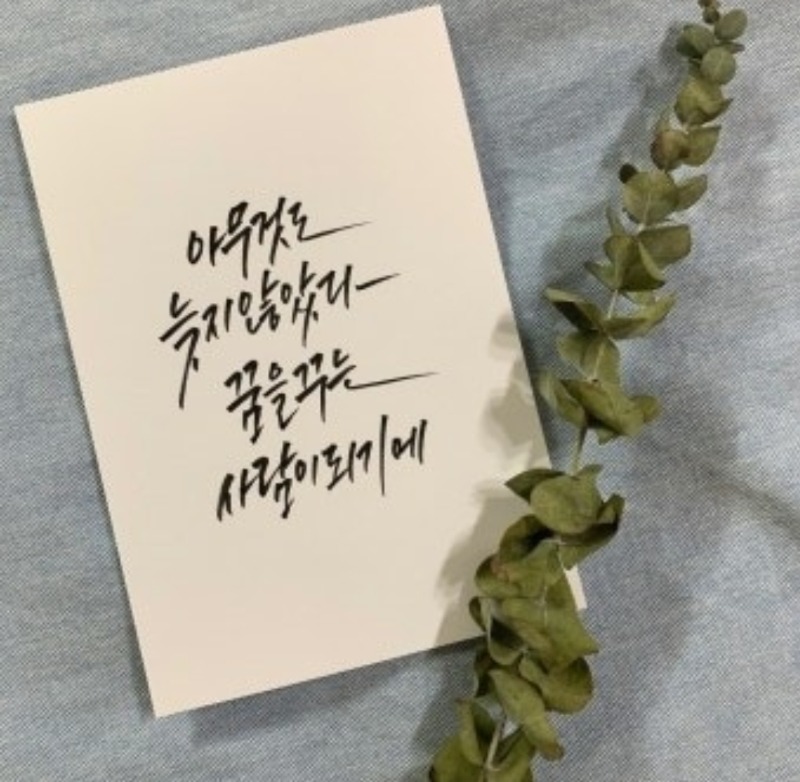 아무것도
늦지않았다
꿈을꾸는
사람이되기에